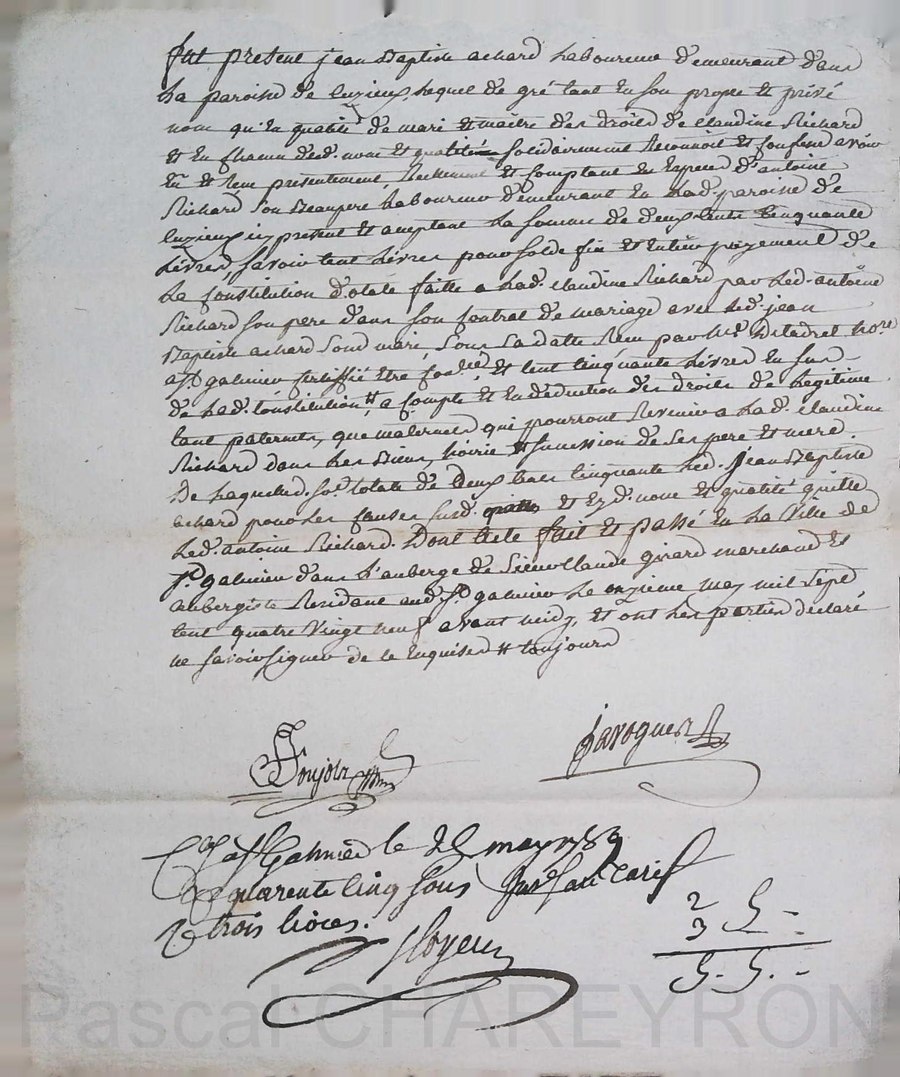 fut présent jean Baptiste achard Laboureur demeurant dans
La paroisse de cuzieux, Lequel de gré tant en son propre et privé
nom qu'en qualité de mari et maître des droits de Claudine Richard
et en chacun desd. noms et qualités solidairement Reconnoit et confesse avoir
eu et Reçu présentement, Réellement et comptant en Espèces d'antoine
Richard son Beaupere Laboureur demeurant en Lad. paroisse de
cuzieux ici présent et acceptant La somme de deux cents Cinquante
Livres, savoir cent Livres pour solde fin et entier payement de
La constitution dotale faitte a Lad. Claudine Richard par Led. antoine
Richard son pere dans son contrat de mariage avec Led. jean
Baptiste achard sond. mari, sous sa datte Reçu par Me no.re
a St galmier certiffié être et cent cinquante Livres en sus
de Lad. Constitution, a compte et en déduction des droits de Légitime
tant paternels, que maternels qui pourront Revenir a Lad. Claudine
Richard dans Les Biens, hoirie et succession de ses pere et mere
De Laquelle d. so.e totale de deux cents cinquante Led. Jean Baptiste
achard pour Les causes susd. et ez d. noms et qualité quitte
Led. antoine Richard. Dont acte fait et passé en La Ville de
St. galmier dans L'auberge de Sieur Claude girard marchand et
aubergiste Résidant aud. St. galmier Le onzieme may mil sept
cent quatre Vingt neuf avant midy, et ont Les parties déclaré
ne savoir signer de ce Enquises # toujours
Javogues
Con.lé a St Galmier le may 1789
R quarente cinq sous au tarif
& trois livres.
2 5 -
3 -
5 - 5 - -
Pascal CHAREYRON